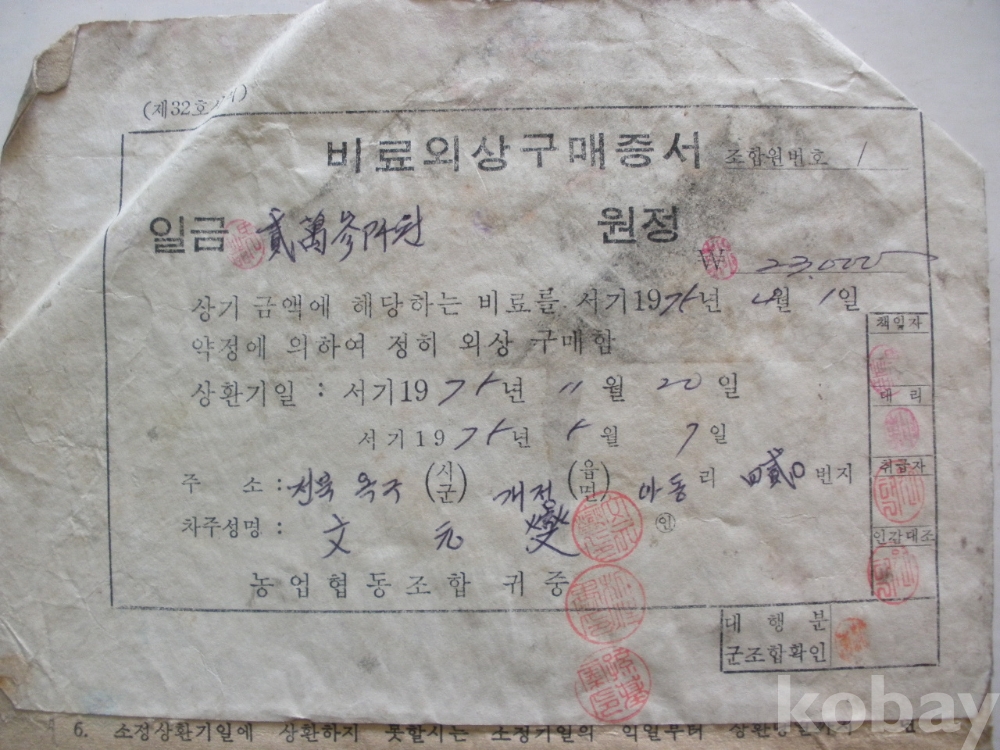 (제32호
비료외상구매증서 조합원번호 1
일금 貳萬參阡원 원정
W 23,000
상기 금액에 해당하는 비료를 서기 1975년 4월 1일
약정에 의하여 정히 외상 구매함
상환기일 : 서기 1975년 11월 20일
서기 1975년 5월 7일
주 소 : 전북 옥구 (시군) 개정 (읍면) 아동 리 번지
차주성명 : 文 元 燮 ㊞
농업협동조합 귀중
책임자
대리
취급자
인감대조
대행분
군조합확인
6. 소정상환기일에 상환하지 못할시는 소정기일의 익일부터
kobay